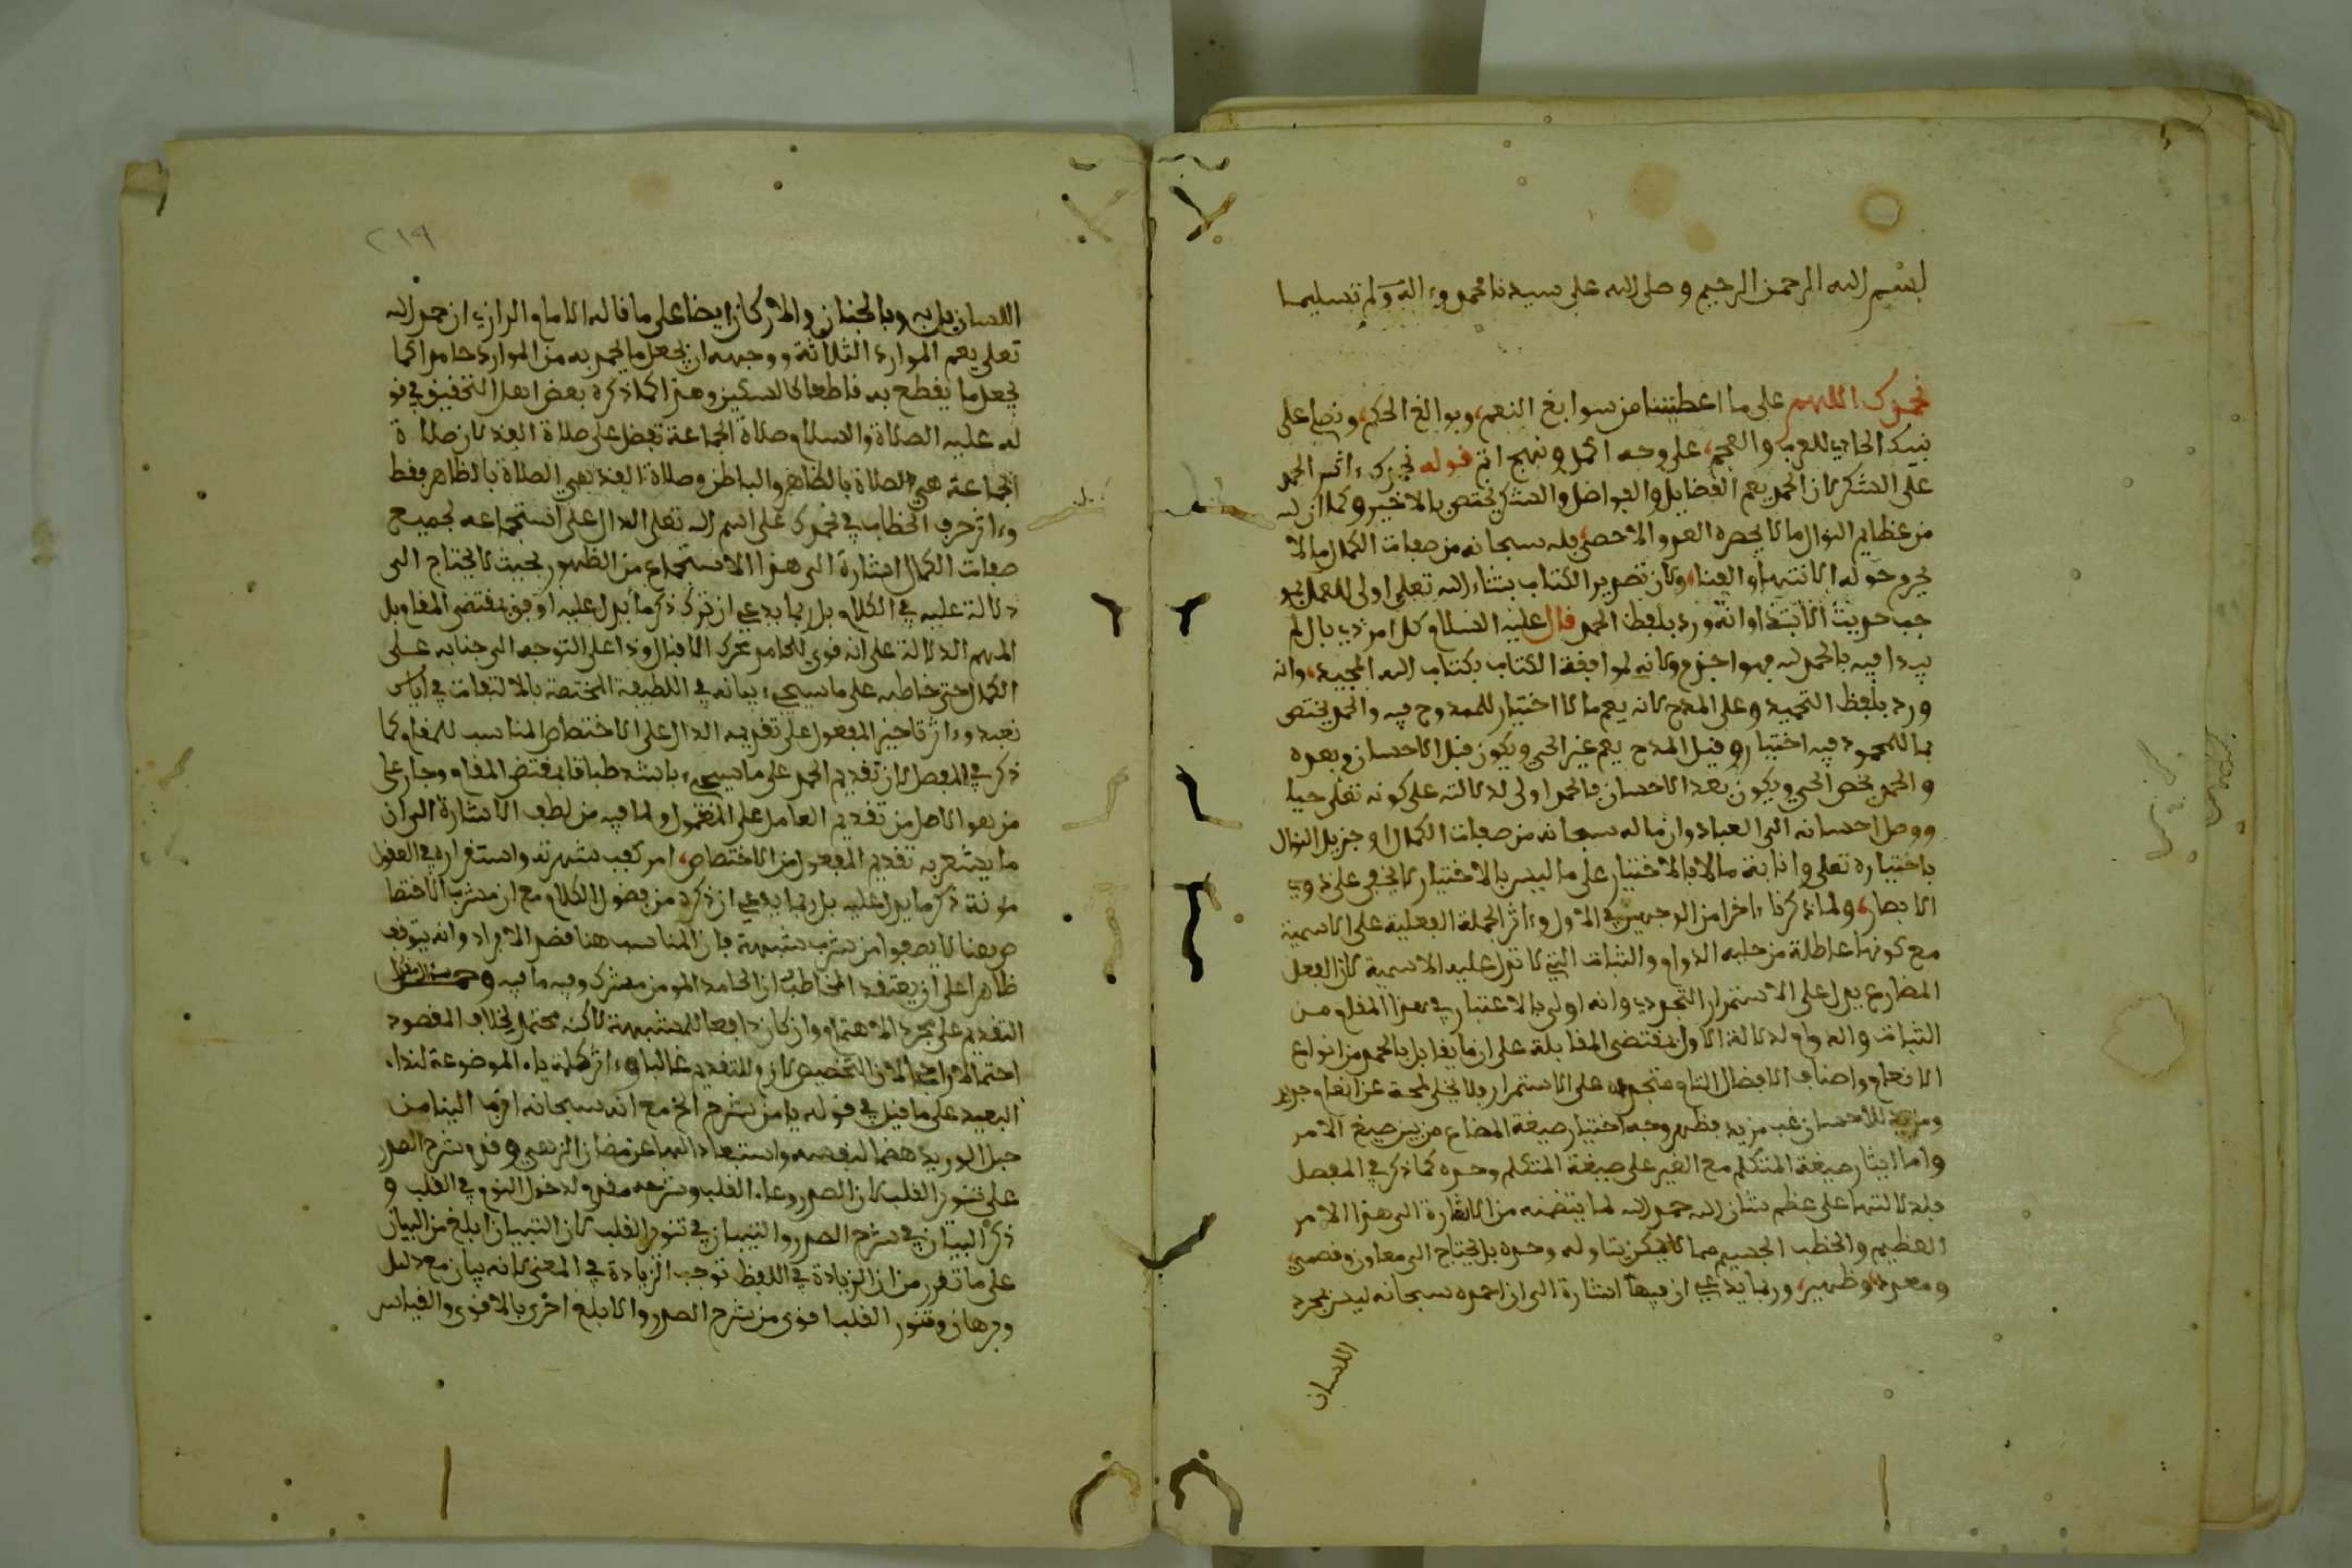 بسم الله الرحمن الرحيم وصلى الله على سيدنا محمد وءاله وسلم تسليما
نحمدك اللهم على ما اعطيتنا من سوابغ النعم، وبوالغ الحكم، ونصلي على
نبيك الهادي للعرب والعجم، على وجه اكمل ونهج اتم قوله نحمدك ءاثر الحمد
على الشكر لان الحمد يعم الفضايل والفواضل والشكر يختص بالاخير وكما ان له
من عظايم النوال ما لا يحصره العد والاحصى فله سبحانه من صفات الكمال ما لا
يروم حوله الانتهاء والفنا، ولان تصدير الكتاب بثناء الله تعلى اولى للعمل بمو
جب حديث الابتداء وانه ورد بلفظ الحمد قال عليه السلام كل امر ذي بال لم
يبدا فيه بالحمد لله فهو اجذم ولانه لموافقة الكتاب بكتاب الله المجيد، وانه
ورد بلفظ التحميد وعلى المدح لانه يعم ما لا اختيار للممدوح فيه والحمد يختص
بما للمحمود فيه اختيار وقيل المدح يعم غير الحي ويكون قبل الاحسان وبعده
والحمد يخص الحي ويكون بعد الاحسان فالحمد اولى لدلالته على كونه تعلى حيا
ووصل احسانه الى العباد وان ما له سبحانه من صفات الكمال او جزيل النوال
باختياره تعلى وانابة ما لا بالاختيار على ما ليس بالاختيار لا يخفى على ذوي
الابصار، ولما ذكرنا ءاخرا من الوجهين في الاول وءاثر الجملة الفعلية على الاسمية
مع كونها عاطلة من حلية الدوام والثبات التي لا تدل عليه الاسمية لان الفعل
المضارع يدل على الاستمرار التجددي وانه اولى بالاعتبار في هذا المقام من
الثبات والدوام لدلالة الاول بمقتضى المقابلة على ان ما يقابل بالحمد من انواع
الانعام واصناف الافضال التام متجدد على الاستمرار ولا يخلى لمحة عن انعام جديد
ومزيد للاحسان غب مزيد فظهر وجه اختيار صيغة المضارع من بين صيغ الامر
واما ايثار صيغة المتكلم مع الغير على صيغة المتكلم وحده كما ذكر في المفصل
فلدلالتها على عظم شان الله حمد الله لما يتضمنه من الاشارة الى هذا الامر
العظيم والخطب الجسيم مما لا يمكن يتاوله وحده بل يحتاج الى معاون ونصير،
ومعين وظهير، وربما يدعي ان فيها اشارة الى ان احمده سبحانه ليس بمجرد
اللسان
٢١٩
اللسان بل به وبالجنان والاركان ايضا على ما قاله الامام الرازي ان حمد الله
تعلى يعم الموارد الثلاثة ووجهه ان يجعل ما يحمد به من الموارد حامدا كما
يجعل ما يقطع به قاطعا كالسكين وهذا كما ذكره بعض اهل التحقيق في قو
له عليه الصلاة والسلام صلاة الجماعة تفضل على صلاة الفذ لان صلاة
الجماعة هي الصلاة بالظاهر والباطن وصلاة الفذ هي الصلاة بالظاهر فقط
وءاثر حرف الخطاب في نحمدك على اسم الله تعلى الدال على استجماعه لجميع
صفات الكمال اشارة الى هذا الاستجماع من الظهور بحيث لا يحتاج الى
دلالة عليه في الكلام بل ربما يدعي ان ترك ذكر ما يدل عليه اوفق بمقتضى المقام بل
المهم الدلالة على انه قوي للحامد محرك الاقبال وداعي التوجه الى جنابه على
الكمال حتى خاطبه على ما سيجيء بيانه في اللطيفة المختصة بالالتفات في اياك
نعبد وءاثر تاخير المفعول على تقديمه الدال على الاختصاص المناسب للمقام كما
ذكر في المفصل لان تقديم الحمد على ما سيجيء باشد طباقا بمقتضى المقام وجار على
من هو الاصل من تقديم العامل على المعمول ولما فيه من لطف الاشارة الى ان
ما يشعر به تقديم المفعول من الاختصاص، امر كفت شهرته واستقراره في العقول
مونة ذكر ما يدل عليه بل ربما يدعي ان ذكره من فضول الكلام مع ان مشرب الاختصا
ص هنا لا يصفوا من شرب شبهة فان المناسب هنا قصر الافراد وانه يتوقف
ظاهرا على ان يعتقد المخاطب ان الحامد المومن مشرك وفيه ما فيه
التقديم على مجرد الاهتمام وان كان دافعا للشبهة لاكنه محتمل بخلاف المقصود
احتمالا راجحا لان التخصيص لازم للتقديم غالبا وءاثر كلمة ياء الموضوعة لنداء
البعيد على ما قيل في قوله يا من شرح الخ مع انه سبحانه اقرب الينا من
حبل الوريد هضما لنفسه واستبعادا لها عن مضان الزلفى وقدم شرح الصدر
على تنور القلب لان الصدر وعاء القلب وشرحه مقدم لدخول النور في القلب و
ذكر البيان في شرح الصدر والتبيان في تنور القلب لان التبيان ابلغ من البيان
على ما تقرر من ان الزيادة في اللفظ توجب الزيادة في المعنى لانه بيان مع دليل
وبرهان وتنور القلب اقوى من شرح الصدر والابلغ احرى بالاقوى والقياس